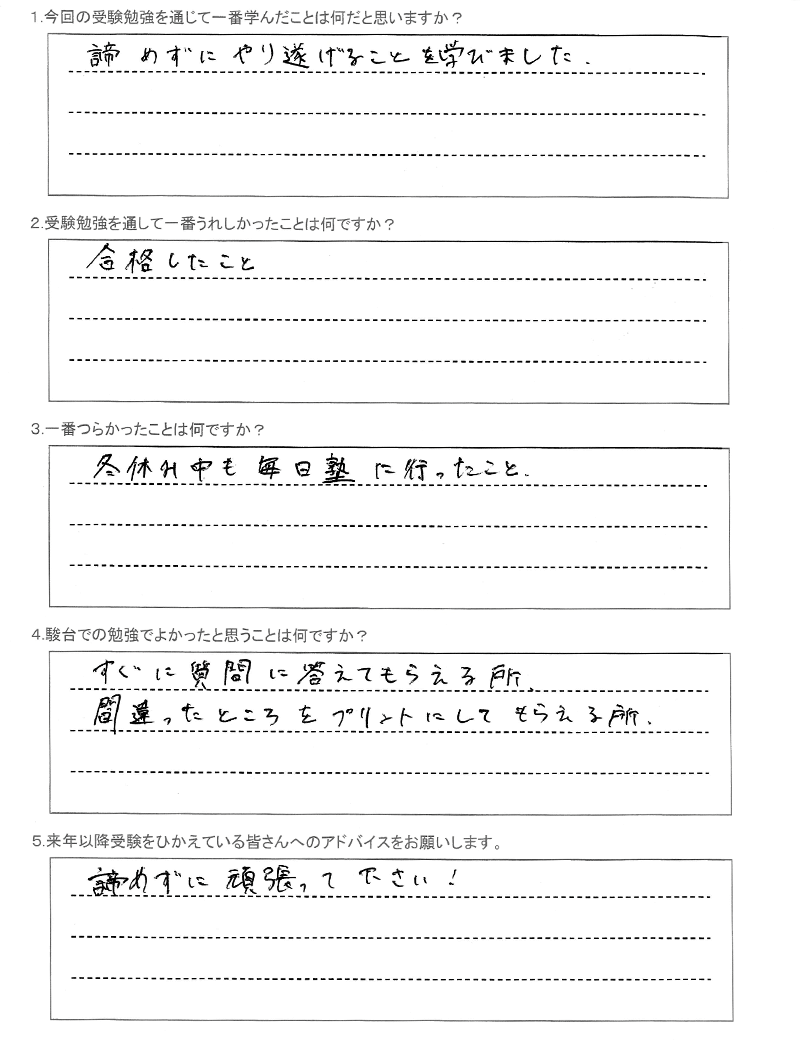 1.今回の受験勉強を通じて一番学んだことは何だと思いますか？
諦めずにやり遂げることを学びました．
2.受験勉強を通して一番うれしかったことは何ですか？
合格したこと
3.一番つらかったことは何ですか？
冬休み中も毎日塾に行ったこと．
4.駿台での勉強でよかったと思うことは何ですか？
すぐに質問に答えてもらえる所．
間違ったところをプリントにしてもらえる所．
5.来年以降受験をひかえている皆さんへのアドバイスをお願いします。
諦めずに頑張って下さい！